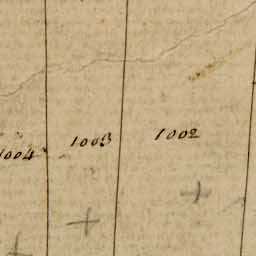 1004 1003 1002